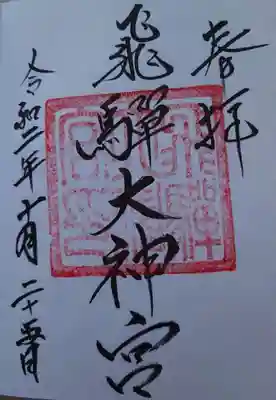 奉拝
飛騨大神宮
令和二年十一月二十五日